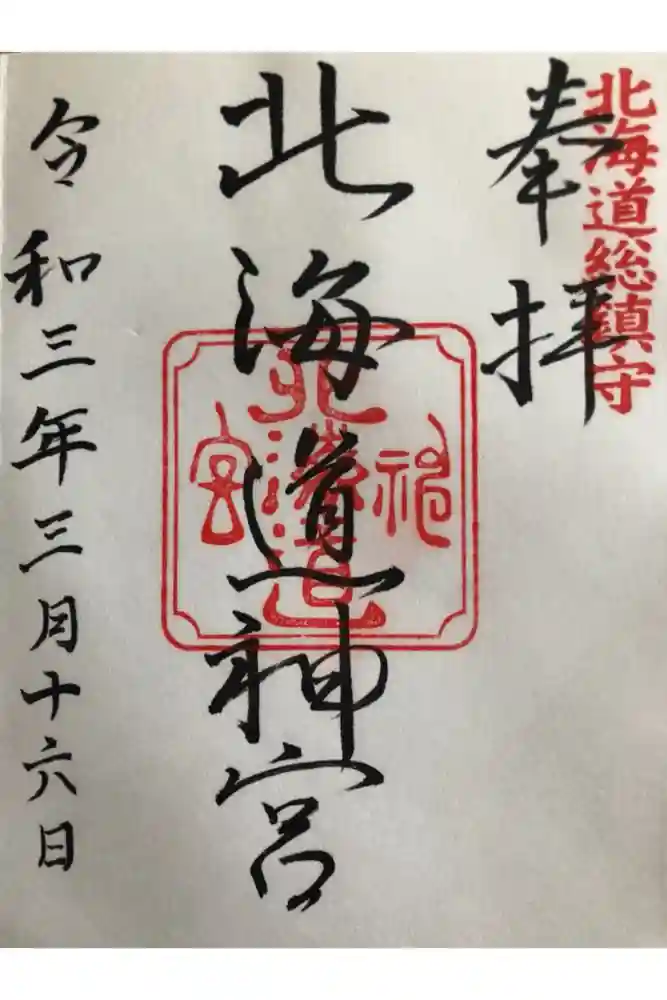 北海道総鎮守
奉拝
北海道神宮
北海道
神
宮
令和三年三月十六日